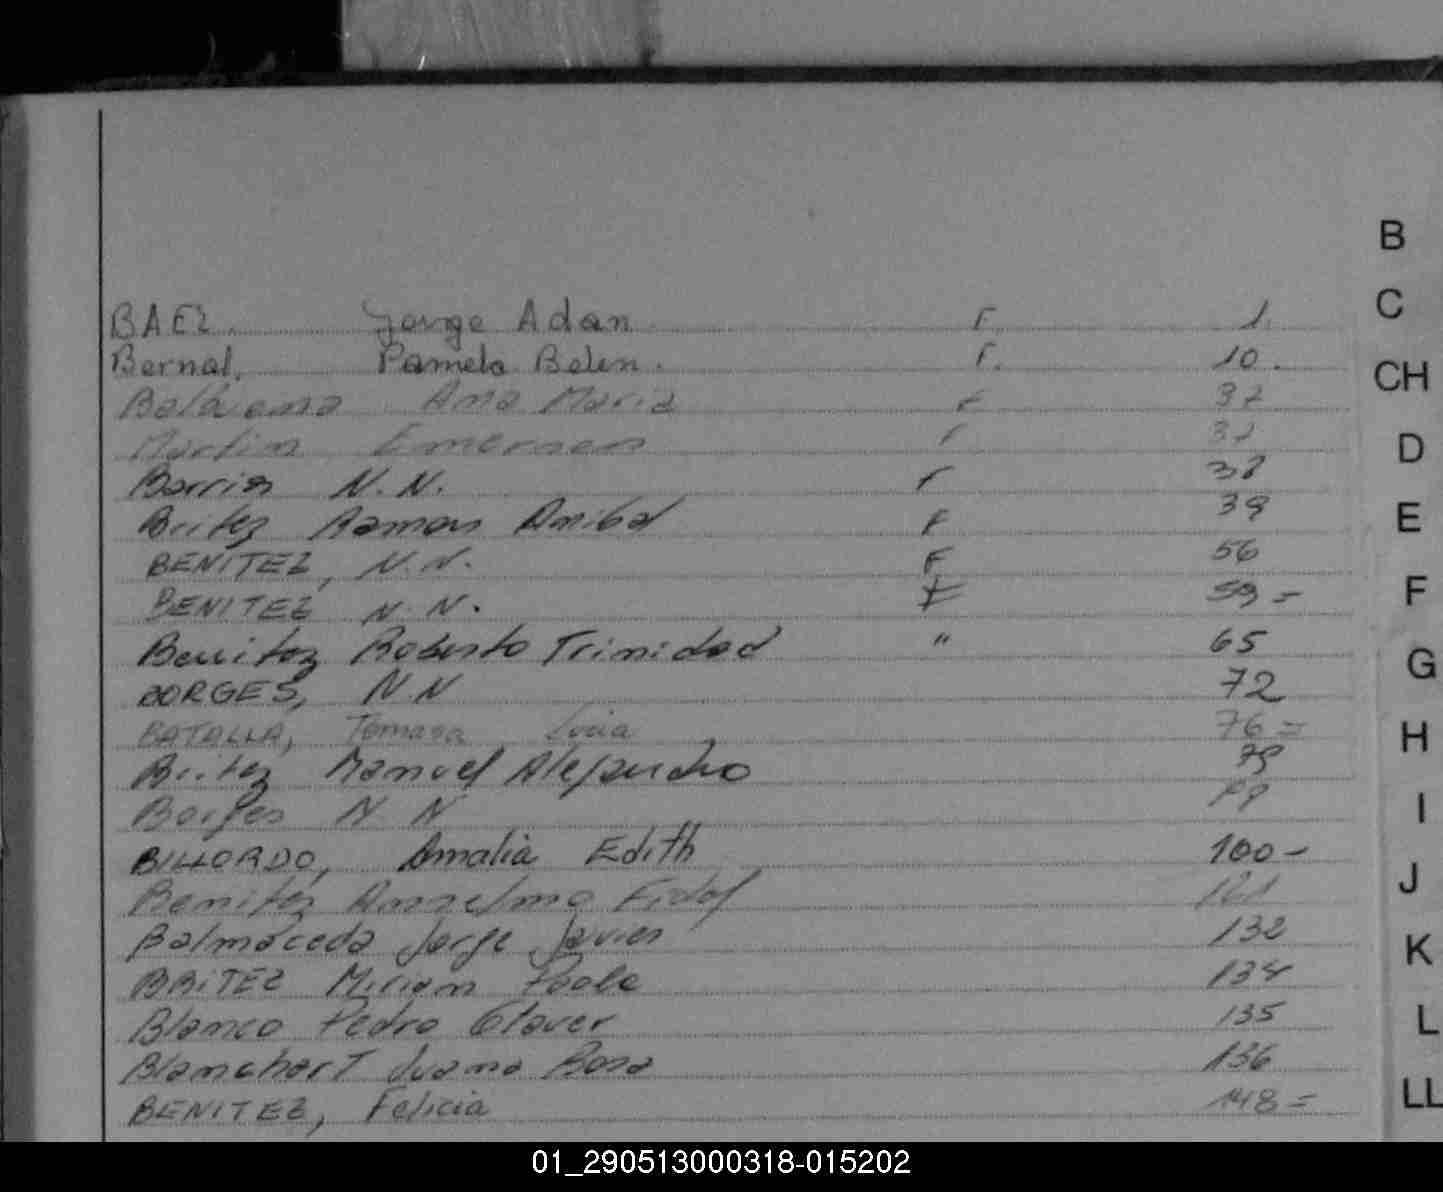 B
C
CH
D
E
F
G
H
I
J
K
L
LL
BAEZ. Jorge Adan F. 1.
Bernal, Pamela Belen. F. 10.
Ana Maria F 32
Martin Emerson F 32
Barrios N.N. F 38
Britez Ramon Anibal F 39
BENITEZ, N.N. F 56
BENITEZ N.N. F 59=
Benitez Roberto Trinidad " 65
BORGES, N N 72
BATALLA, Tomasa Lucia 76=
Britez Manuel Alejandro 79
Borges N N
BILLORDO, Amalia Edith 100-
Benitez Anselmo Fidel 121
Balmaceda Jorge Javier 132
BRITEZ Miriam Paola 134
Blanco Pedro Claver 135
Blanchart Juana Rosa 136
BENITEZ, Felicia 148=
01_290513000318-015202